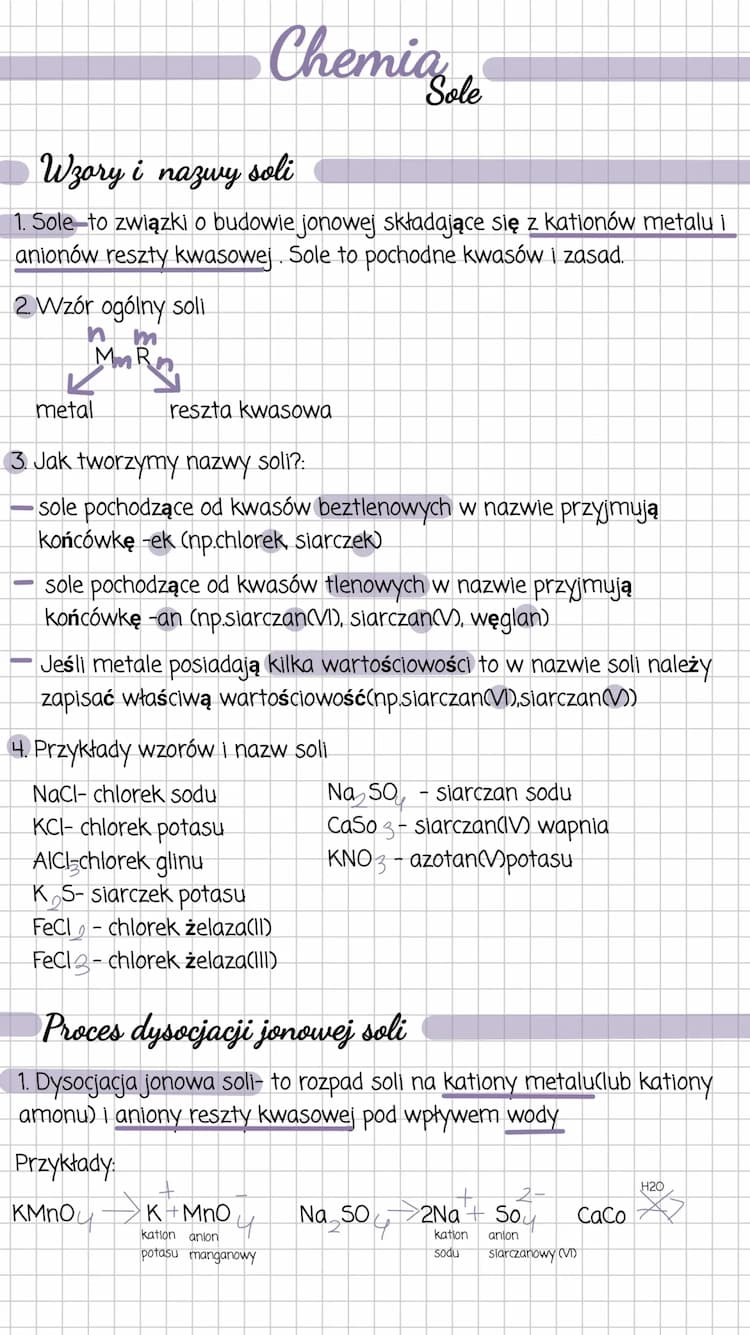 Chemia
Sole
Wzory i nazwy soli
1. Sole-to związki o budowie jonowej składające się z kationów metalu i
anionów reszty kwasowej. Sole to pochodne kwasów i zasad.
2. Wzór ogólny soli
n m
MmRn
metal reszta kwasowa
3. Jak tworzymy nazwy soli?:
- sole pochodzące od kwasów beztlenowych w nazwie przyjmują
końcówkę -ek (np.chlorek, siarczek)
- sole pochodzące od kwasów tlenowych w nazwie przyjmują
końcówkę -an (np.siarczan(VI), siarczan(V), węglan)
- Jeśli metale posiadają kilka wartościowości to w nazwie soli należy
zapisać właściwą wartościowość(np.siarczan(VI),siarczan(V))
4. Przykłady wzorów i nazw soli
NaCl- chlorek sodu
KCl- chlorek potasu
AlCl3-chlorek glinu
K2S- siarczek potasu
FeCl2 - chlorek żelaza(II)
FeCl3 - chlorek żelaza(III)
Na2SO4 - siarczan sodu
CaSo3 - siarczan(IV) wapnia
KNO3 - azotan(V)potasu
Proces dysocjacji jonowej soli
1. Dysocjacja jonowa soli- to rozpad soli na kationy metalu(lub kationy
amonu) i aniony reszty kwasowej pod wpływem wody
Przykłady:
KMnO4 → K⁺ + MnO4⁻ Na2SO4 → 2Na⁺ + So4²⁻ CaCo H2O
kation anion kation anion
potasu manganowy sodu siarczanowy (VI)